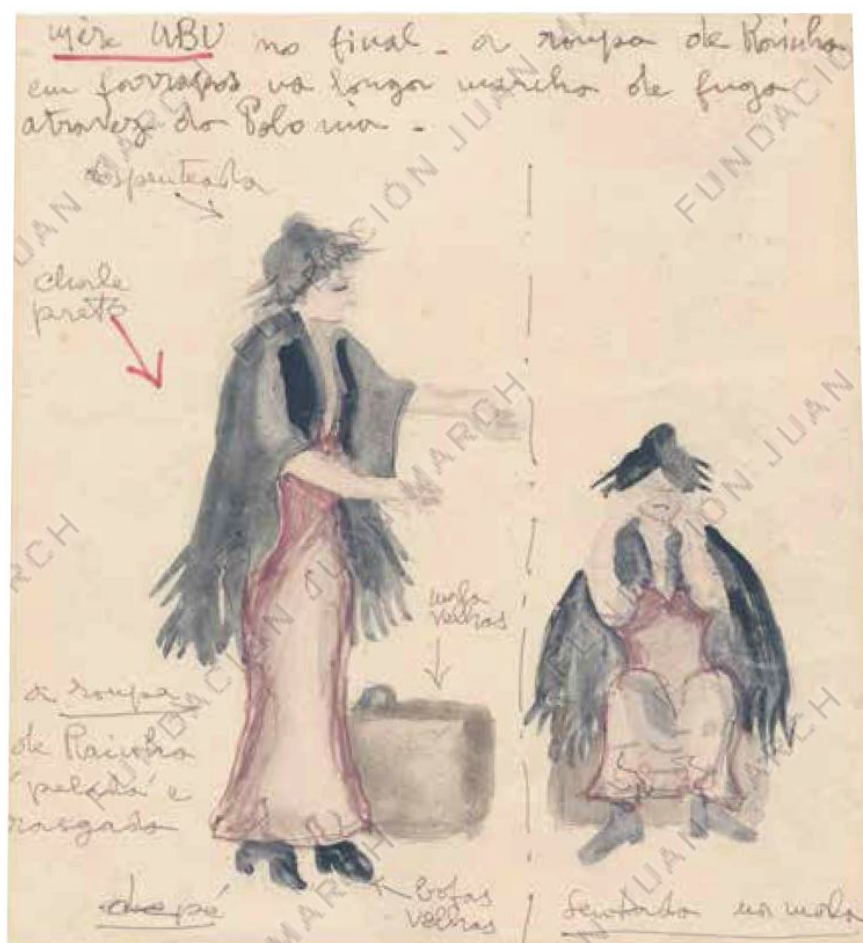 Mère UBU no final - a roupa de Rainha
em farrapos na longa marcha de fuga
atravez da Polonia -
espenteada
chale
preto
mala
velhas
a roupa
de Rainha
'pelada' e
rasgada
de pé
botas
velhas
sentada na mala
FUNDACIÓN JUAN MARCH